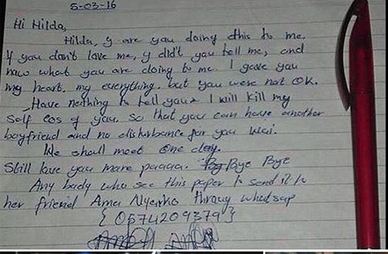 5-03-16
Hi Hilda,
Hilda, y are you doing this to me.
If you don't love me, y did't you tell me, and
now what you are doing to me. I gave you
my heart, my everything, but you were not OK.
Have nothing to tell you I will kill my
self cos of you, so that you can have another
boyfriend and no disturbance for you wai.
We shall meet one day.
Still love you more paaaa. Bye Bye
Any body who see this paper to send it to
her friend Ama throug whatsap
{0574209379}